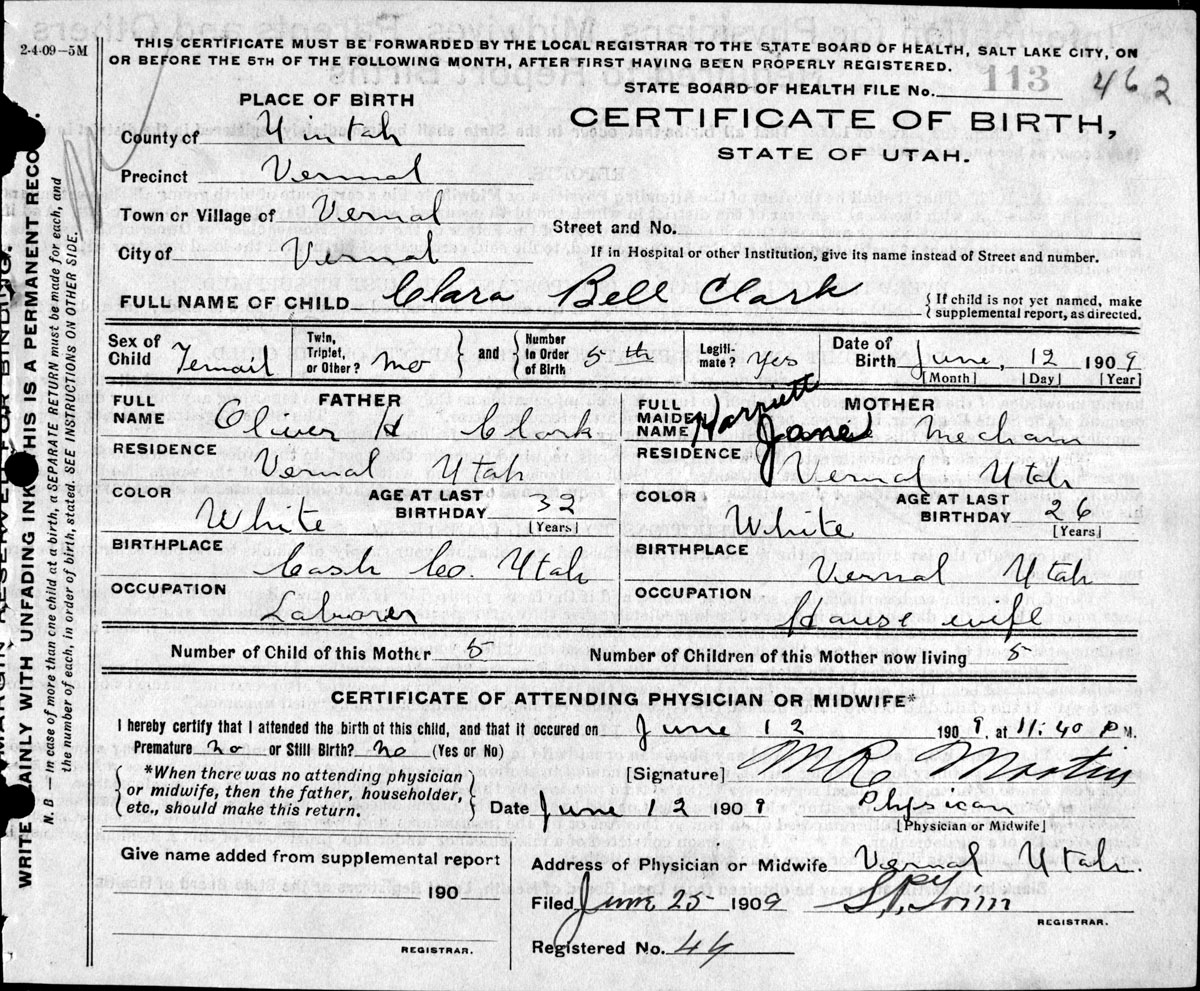 2-4-09—5M
THIS CERTIFICATE MUST BE FORWARDED BY THE LOCAL REGISTRAR TO THE STATE BOARD OF HEALTH, SALT LAKE CITY, ON
OR BEFORE THE 5TH OF THE FOLLOWING MONTH, AFTER FIRST HAVING BEEN PROPERLY REGISTERED.
STATE BOARD OF HEALTH FILE No. 113 462
PLACE OF BIRTH
CERTIFICATE OF BIRTH,
STATE OF UTAH.
County of Uintah
Precinct Vernal
Town or Village of Vernal
Street and No.
City of Vernal
If in Hospital or other Institution, give its name instead of Street and number.
FULL NAME OF CHILD Clara Bell Clark
{If child is not yet named, make
supplemental report, as directed.
Sex of Child Femail
Twin, Triplet, or Other? no
and
Number in Order of Birth 5th
Legiti-mate? Yes
Date of Birth June, 12 1909
[Month] [Day] [Year]
FATHER
FULL NAME Oliver H Clark
RESIDENCE Vernal Utah
COLOR White
AGE AT LAST BIRTHDAY 32
[Years]
BIRTHPLACE Cash Co. Utah
OCCUPATION Laborer
MOTHER
FULL MAIDEN NAME Harriett Jane Mecham
RESIDENCE Vernal Utah
COLOR White
AGE AT LAST BIRTHDAY 26
[Years]
BIRTHPLACE Vernal Utah
OCCUPATION House wife
Number of Child of this Mother 5
Number of Children of this Mother now living 5
CERTIFICATE OF ATTENDING PHYSICIAN OR MIDWIFE*
I hereby certify that I attended the birth of this child, and that it occured on June 12 1909, at 11:40 P M.
Premature no or Still Birth? no (Yes or No)
*When there was no attending physician
or midwife, then the father, householder,
etc., should make this return.
[Signature] M R Martin
Date June 12 1909 Physican
[Physician or Midwife]
Give name added from supplemental report
190
REGISTRAR.
Address of Physician or Midwife Vernal Utah.
Filed June 25 1909
REGISTRAR.
Registered No. 44
WRITE PLAINLY WITH UNFADING INK THIS IS A PERMANENT RECO
N. B.—In case of more than one child at a birth, a SEPARATE RETURN must be made for each, and
the number of each, in order of birth, stated. SEE INSTRUCTIONS ON OTHER SIDE.